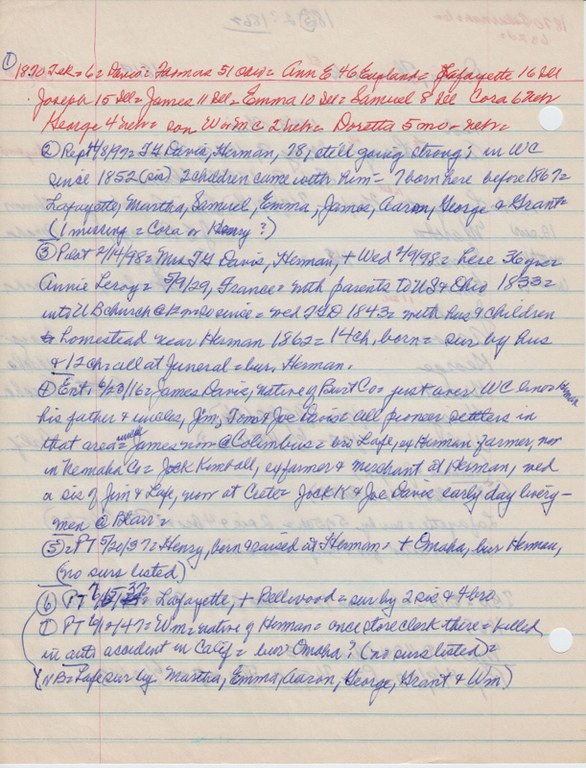 ① 1870 Tek = 6 = Davis = Thomas 51 Ohio = Ann E. 46 England = Lafayette 16 Ill
Joseph 15 Ill = James 11 Ill = Emma 10 Ill = Samuel 8 Ill Cora 6 Nebr
George 4 Nebr = son Wm C 2 Nebr = Doretta 5 mo = Nebr =
② Rept 4/8/97 = TH Davis, Herman, 78, still going strong; in WC
since 1852 (sic) 2 children came with him = 7 born here before 1867 =
Lafayette, Martha, Samuel, Emma, James, Aaron, George & Grant =
(1 missing = Cora or Henry?)
③ Pilot 2/14/98 = Mrs TH Davis, Herman, + Wed 2/9/98 = here 36 yrs =
Annie Leroy = 5/9/29, France = with parents to US & Ohio 1833 =
into UB church @ 12 mo since = wed THD 1843 = with hus & children
to homestead near Herman 1862 = 14 ch. born = sur by hus
& 12 ch = all at funeral = bur. Herman.
④ Ent. 6/23/16 = James Davis, native of Burt Co = just over WC line =
his father & uncles, Jim, Tom & Joe Davis = all pioneer settlers in
that area = James now @ Columbus = bro Lafe, ex Herman farmer, now
in Nemaha Co = Jack Kimball, ex farmer & merchant at Herman, wed
a sis of Jim & Lafe, now at Crete = Jack K & Joe Davis early day livery-
men @ Blair =
⑤ = PT 5/20/37 = Henry, born & raised at Herman = + Omaha, bur Herman,
(no surs listed)
⑥ PT = Lafayette, + Bellwood = sur by 2 sis & 4 bro
⑦ PT 6/12/47 = Wm = native of Herman = once store clerk there = killed
in auto accident in Calif = bur Omaha? (no surs listed) =
(NB = Lafe sur by Martha, Emma, Aaron, George, Grant & Wm)